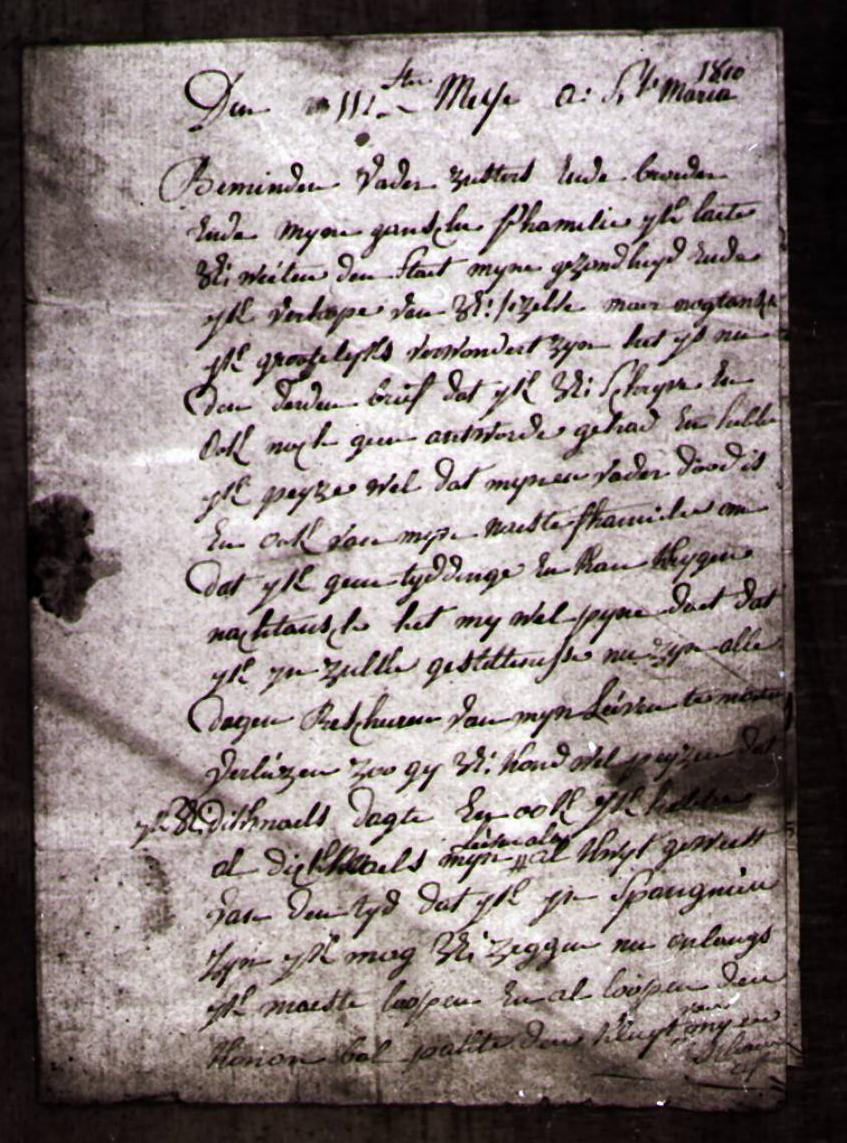 Den 11sten Meije a: Ste Maria 1810
Beminden vader zusters ende broeder
ende myne gansche fhamilie ijk laete
Ul: weiten den staet myne gezondheyd ende
ijk verhope van Ul: sezelte maer nogtans
ijk grootelyks verwondert zyn het is nu
den derden brief dat ijk Ul: schryve en
ook noch geen antworde gehad en hebbe
ijk peyze wel dat mynen vader dood is
en ook van myn naeste fhamilie om
dat ijk geen tyddinge en kan krygen
nochtans het my wel pyne doet dat
ijk yn zulke gesteltenisse nu zyn alle
dagen van myn leéven te moeten
verliézen zoo gy Ul: kond wel peyzen dat
ijk Ul: dikmaels dagte en ook ijk hebbe
al dickmaels myn al kwyt geweest
van den tyd dat ijk yn Spangnien
zyn ijk mag Ul: zeggen nu onlangs
ijk moeste loopen en al loopen den
konon bal pakte den van myn